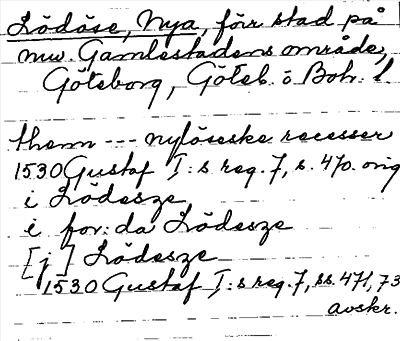 Lödöse, Nya, förr stad på
nuv. Gamlestadens område,
Göteborg, Göteb. o Boh. l.
thenn --- nylöseske recesser
1530 Gustaf I:s reg. 7, s. 470. orig
i Lödesze
i for: da Lödesze
[j] Lödesze
1530 Gustaf I:s reg. 7, ss. 471, 73
avskr.